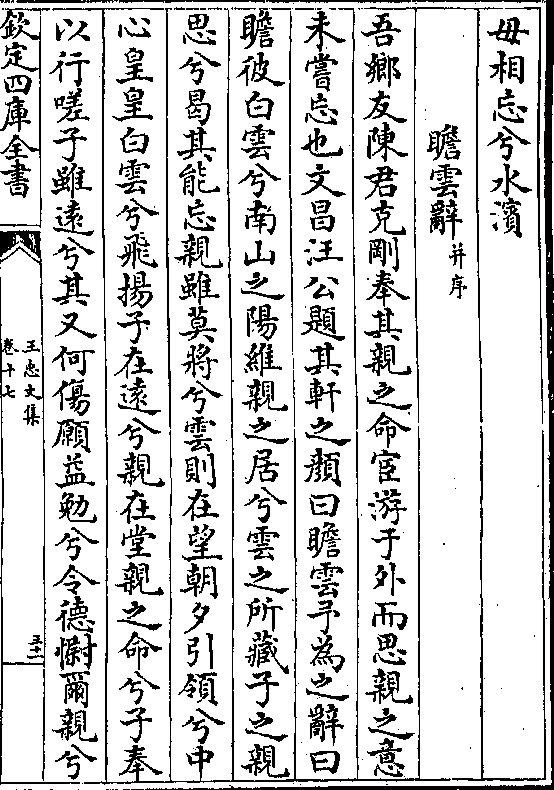 毋相忘兮水濱
瞻雲辭并序
吾鄉友陳君克剛奉其親之命宦游于外而思親之意
未嘗忘也文昌汪公題其軒之顔曰瞻雲予為之辭曰
瞻彼白雲兮南山之陽維親之居兮雲之所藏子之親
思兮曷其能忘親雖莫將兮雲則在望朝夕引領兮中
心皇皇白雲兮飛揚子在遠兮親在堂親之命兮子奉
以行嗟子雖遠兮其又何傷願益勉兮令德慰爾親兮
欽定四庫全書
王忠文集
卷十七
五十一